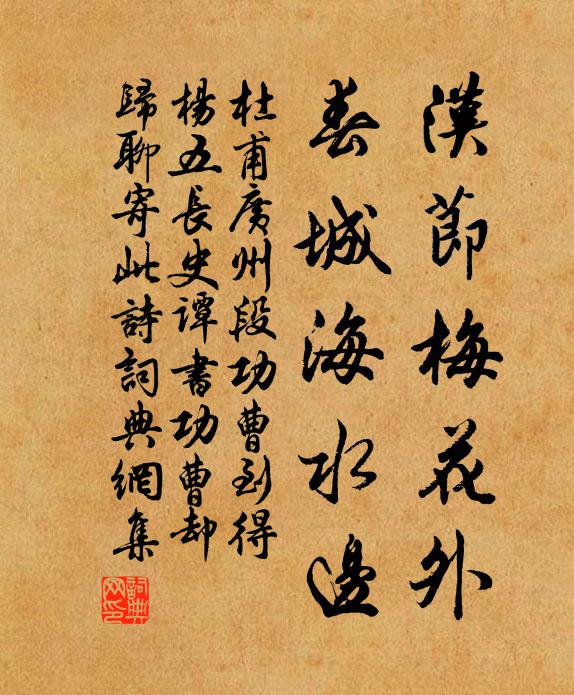 漢節梅花外
春城海水邊
杜甫廣州段功曹到得
楊五長史譚書功曹却
歸聊寄此詩詞典網集
詞典網印